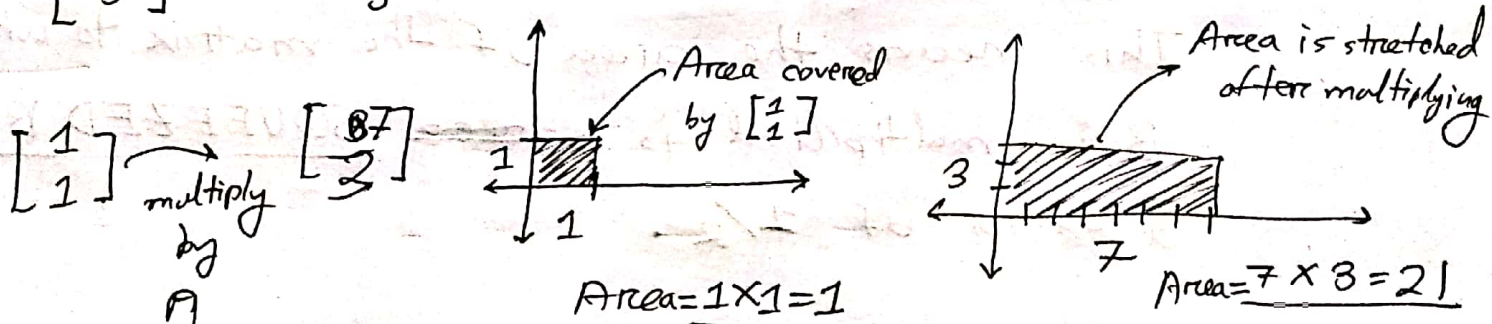 [1
1] multiply by A [7
3]
1
1
Area covered
by [1
1]
Area=1×1=1
3
7
Area is stretched
after multiplying
Area=7×3=21